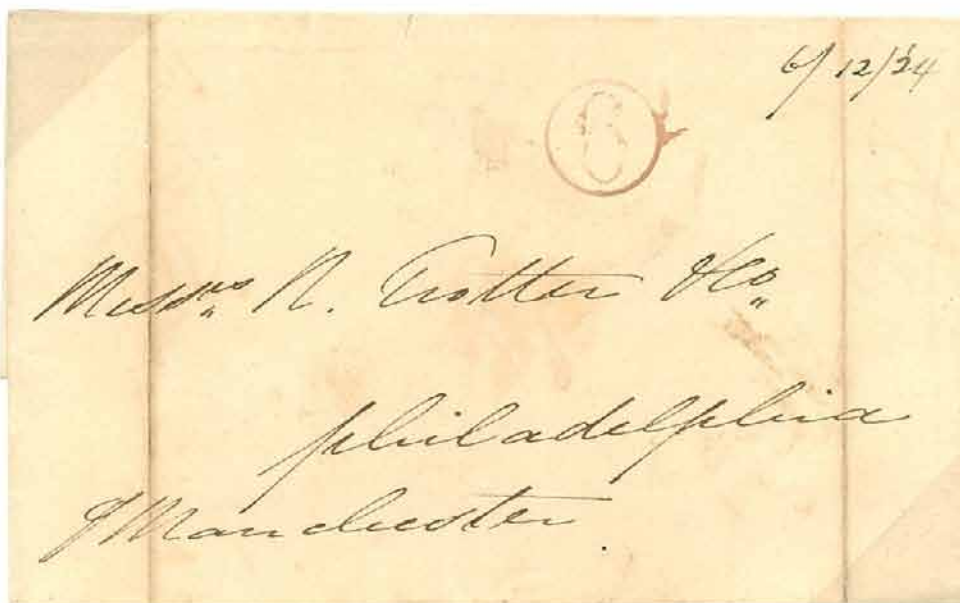 6/12/24
6
Messrs. N. Trotter & Co.
philadelphia
Manchester